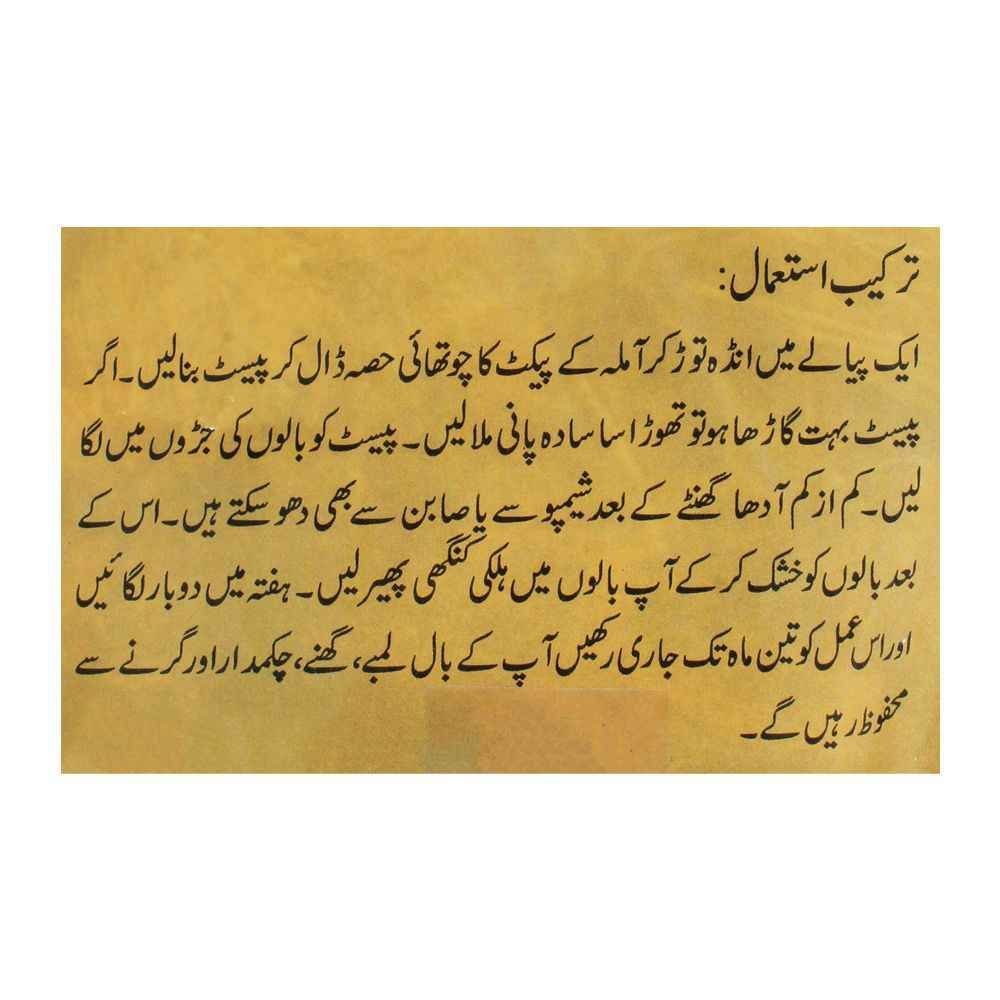 ترکیب استعمال:
ایک پیالے میں انڈہ توڑ کر آملہ کے پیکٹ کا چوتھائی حصہ ڈال کر پیسٹ بنالیں۔ اگر
پیسٹ بہت گاڑھا ہو تو تھوڑا سا سادہ پانی ملا لیں۔ پیسٹ کو بالوں کی جڑوں میں لگا
لیں۔ کم از کم آدھا گھنٹے کے بعد شیمپو سے یا صابن سے بھی دھو سکتے ہیں۔ اس کے
بعد بالوں کو خشک کر کے آپ بالوں میں ہلکی کنگھی پھیر لیں۔ ہفتہ میں دو بار لگائیں
اور اس عمل کو تین ماہ تک جاری رکھیں آپ کے بال لمبے، گھنے، چکمدار اور گرنے سے
محفوظ رہیں گے۔